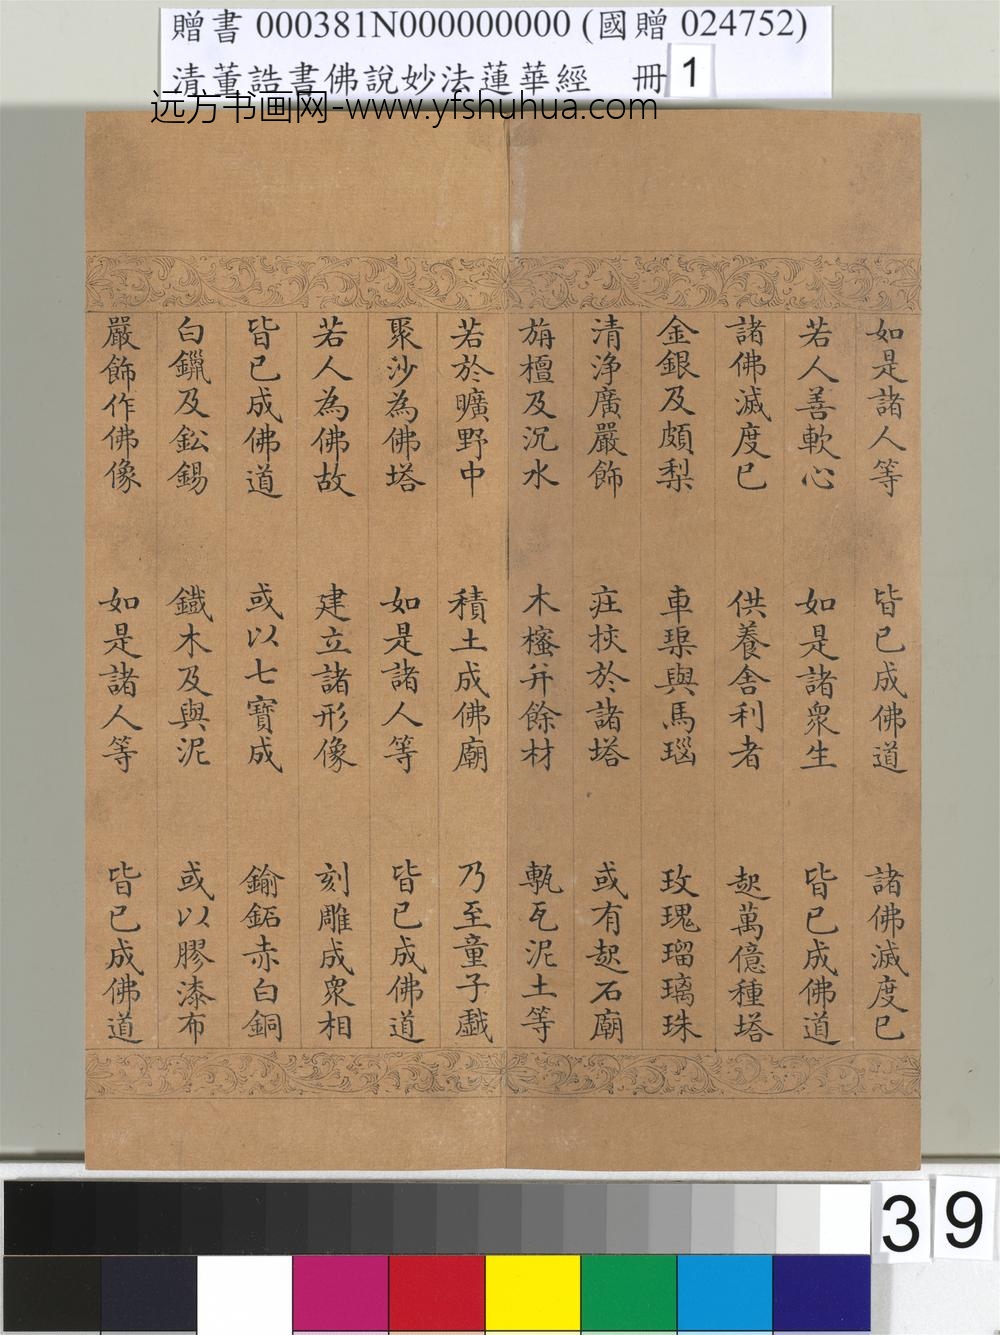 贈書 000381N000000000 (國贈 024752)
清董誥書佛說妙法蓮華經 冊 1
远方书画网-www.yfshuhua.com
如是諸人等 皆已成佛道 諸佛滅度已
若人善軟心 如是諸衆生 皆已成佛道
諸佛滅度已 供養舍利者 起萬億種塔
金銀及頗梨 車𤦲與馬瑙 玫瑰瑠璃珠
清淨廣嚴飾 莊挍於諸塔 或有起石廟
旃檀及沉水 木櫁并餘材 甎瓦泥土等
若於曠野中 積土成佛廟 乃至童子戲
聚沙為佛塔 如是諸人等 皆已成佛道
若人為佛故 建立諸形像 刻雕成衆相
皆已成佛道 或以七寶成 鍮鉐赤白銅
白鑞及鈆錫 鐵木及與泥 或以膠漆布
嚴飾作佛像 如是諸人等 皆已成佛道
39